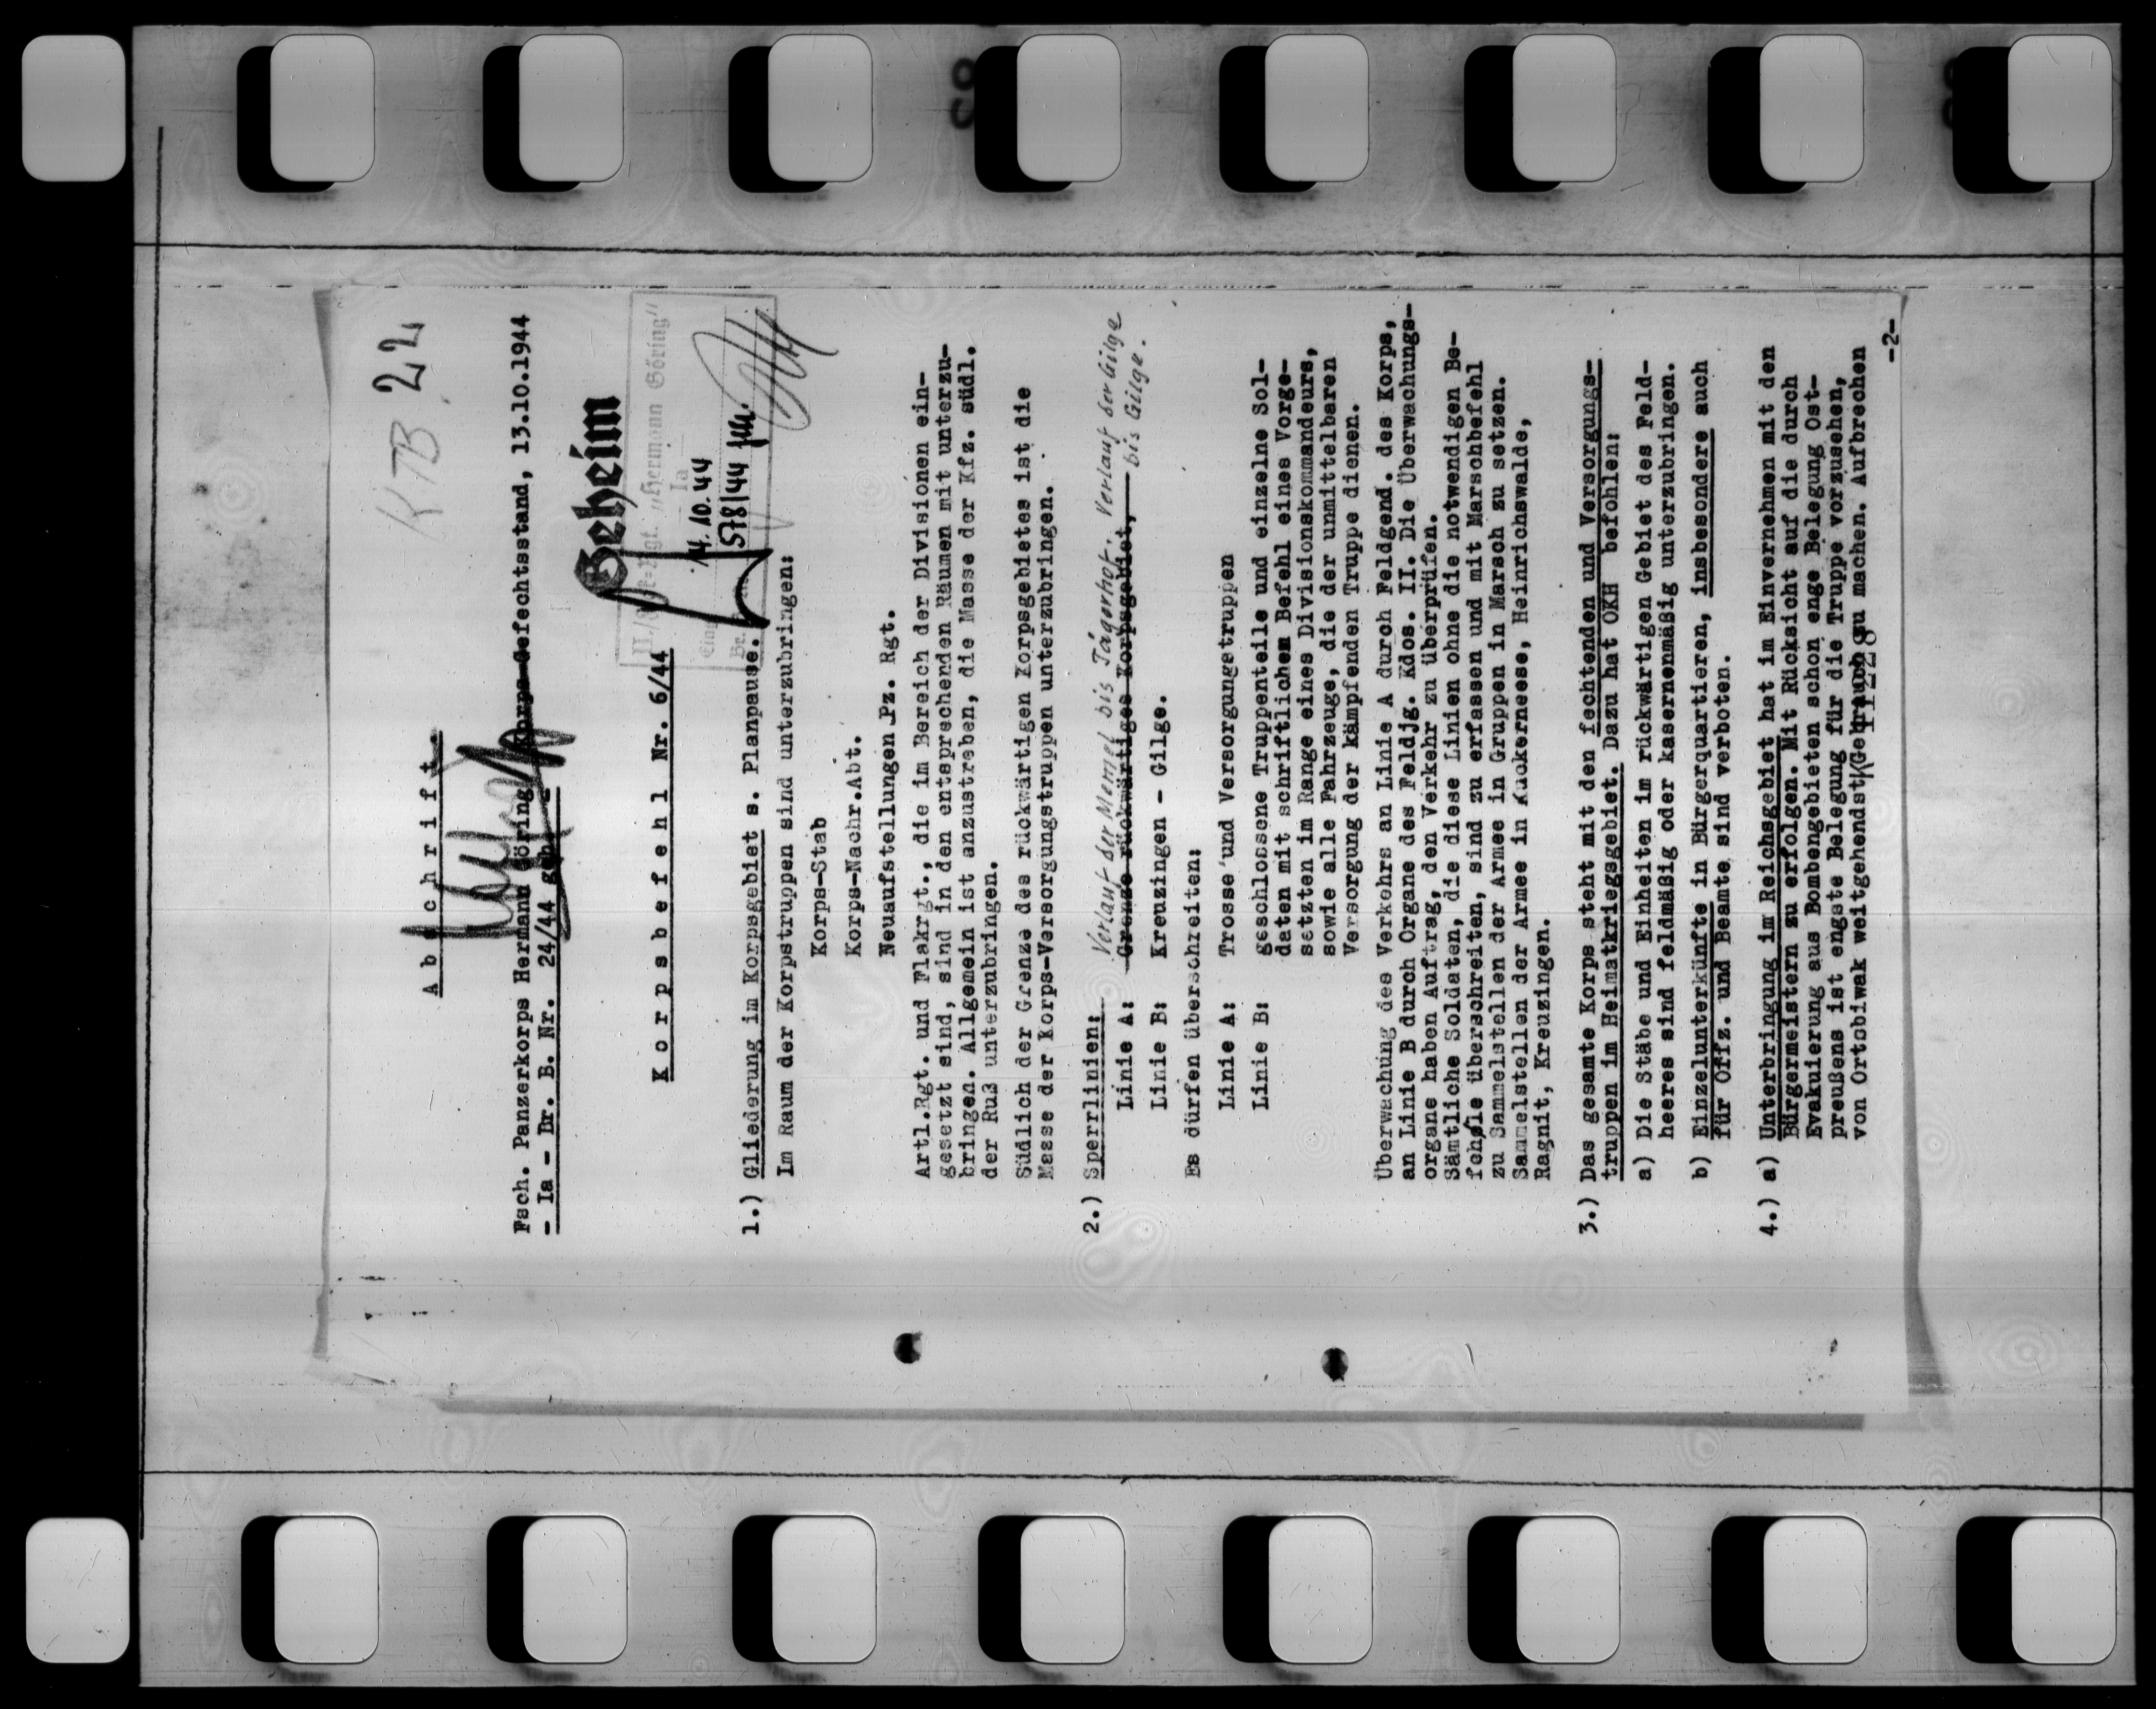 KTB 22
A b s c h r i f t.
Fsch. Panzerkorps Hermann Göring Korps-Gefechtsstand, 13.10.1944
- Ia - Br. B. Nr. 24/44 geh. -
Geheim
"Hermann Göring"
Ia
14.10.44
578/44
K o r p s b e f e h l Nr. 6/44
1.) Gliederung im Korpsgebiet s. Planpause.
Im Raum der Korpstruppen sind unterzubringen:
Korps-Stab
Korps-Nachr.Abt.
Neuaufstellungen Pz. Rgt.
Artl.Rgt. und Flakrgt., die im Bereich der Divisionen ein-
gesetzt sind, sind in den entsprechenden Räumen mit unterzu-
bringen. Allgemein ist anzustreben, die Masse der Kfz. südl.
der Ruß unterzubringen.
Südlich der Grenze des rückwärtigen Korpsgebietes ist die
Masse der Korps-Versorgungstruppen unterzubringen.
2.) Sperrlinien:
Verlauf der Memel bis Jägerhof. Verlauf der Gilge
Linie A: Grenze rückwärtiges Korpsgebiet, bis Gilge.
Linie B: Kreuzingen - Gilge.
Es dürfen überschreiten:
Linie A: Trosse und Versorgungstruppen
Linie B: geschlossene Truppenteile und einzelne Sol-
daten mit schriftlichem Befehl eines Vorge-
setzten im Range eines Divisionskommandeurs,
sowie alle Fahrzeuge, die der unmittelbaren
Versorgung der kämpfenden Truppe dienen.
Überwachung des Verkehrs an Linie A durch Feldgend. des Korps,
an Linie B durch Organe des Feldjg. Kdos. II. Die Überwachungs-
organe haben Auftrag, den Verkehr zu überprüfen.
Sämtliche Soldaten, die diese Linien ohne die notwendigen Be-
fehle überschreiten, sind zu erfassen und mit Marschbefehl
zu Sammelstellen der Armee in Gruppen in Marsch zu setzen.
Sammelstellen der Armee in Kuckerneese, Heinrichswalde,
Ragnit, Kreuzingen.
3.) Das gesamte Korps steht mit den fechtenden und Versorgungs-
truppen im Heimatkriegsgebiet. Dazu hat OKH befohlen:
a) Die Stäbe und Einheiten im rückwärtigen Gebiet des Feld-
heeres sind feldmäßig oder kasernenmäßig unterzubringen.
b) Einzelunterkünfte in Bürgerquartieren, insbesondere auch
für Offz. und Beamte, sind verboten.
4.) a) Unterbringung im Reichsgebiet hat im Einvernehmen mit den
Bürgermeistern zu erfolgen. Mit Rücksicht auf die durch
Evakuierung aus Bombengebieten schon enge Belegung Ost-
preußens ist engste Belegung für die Truppe vorzusehen,
von Ortsbiwak weitgehendst Gebrauch zu machen. Aufbrechen
-2-